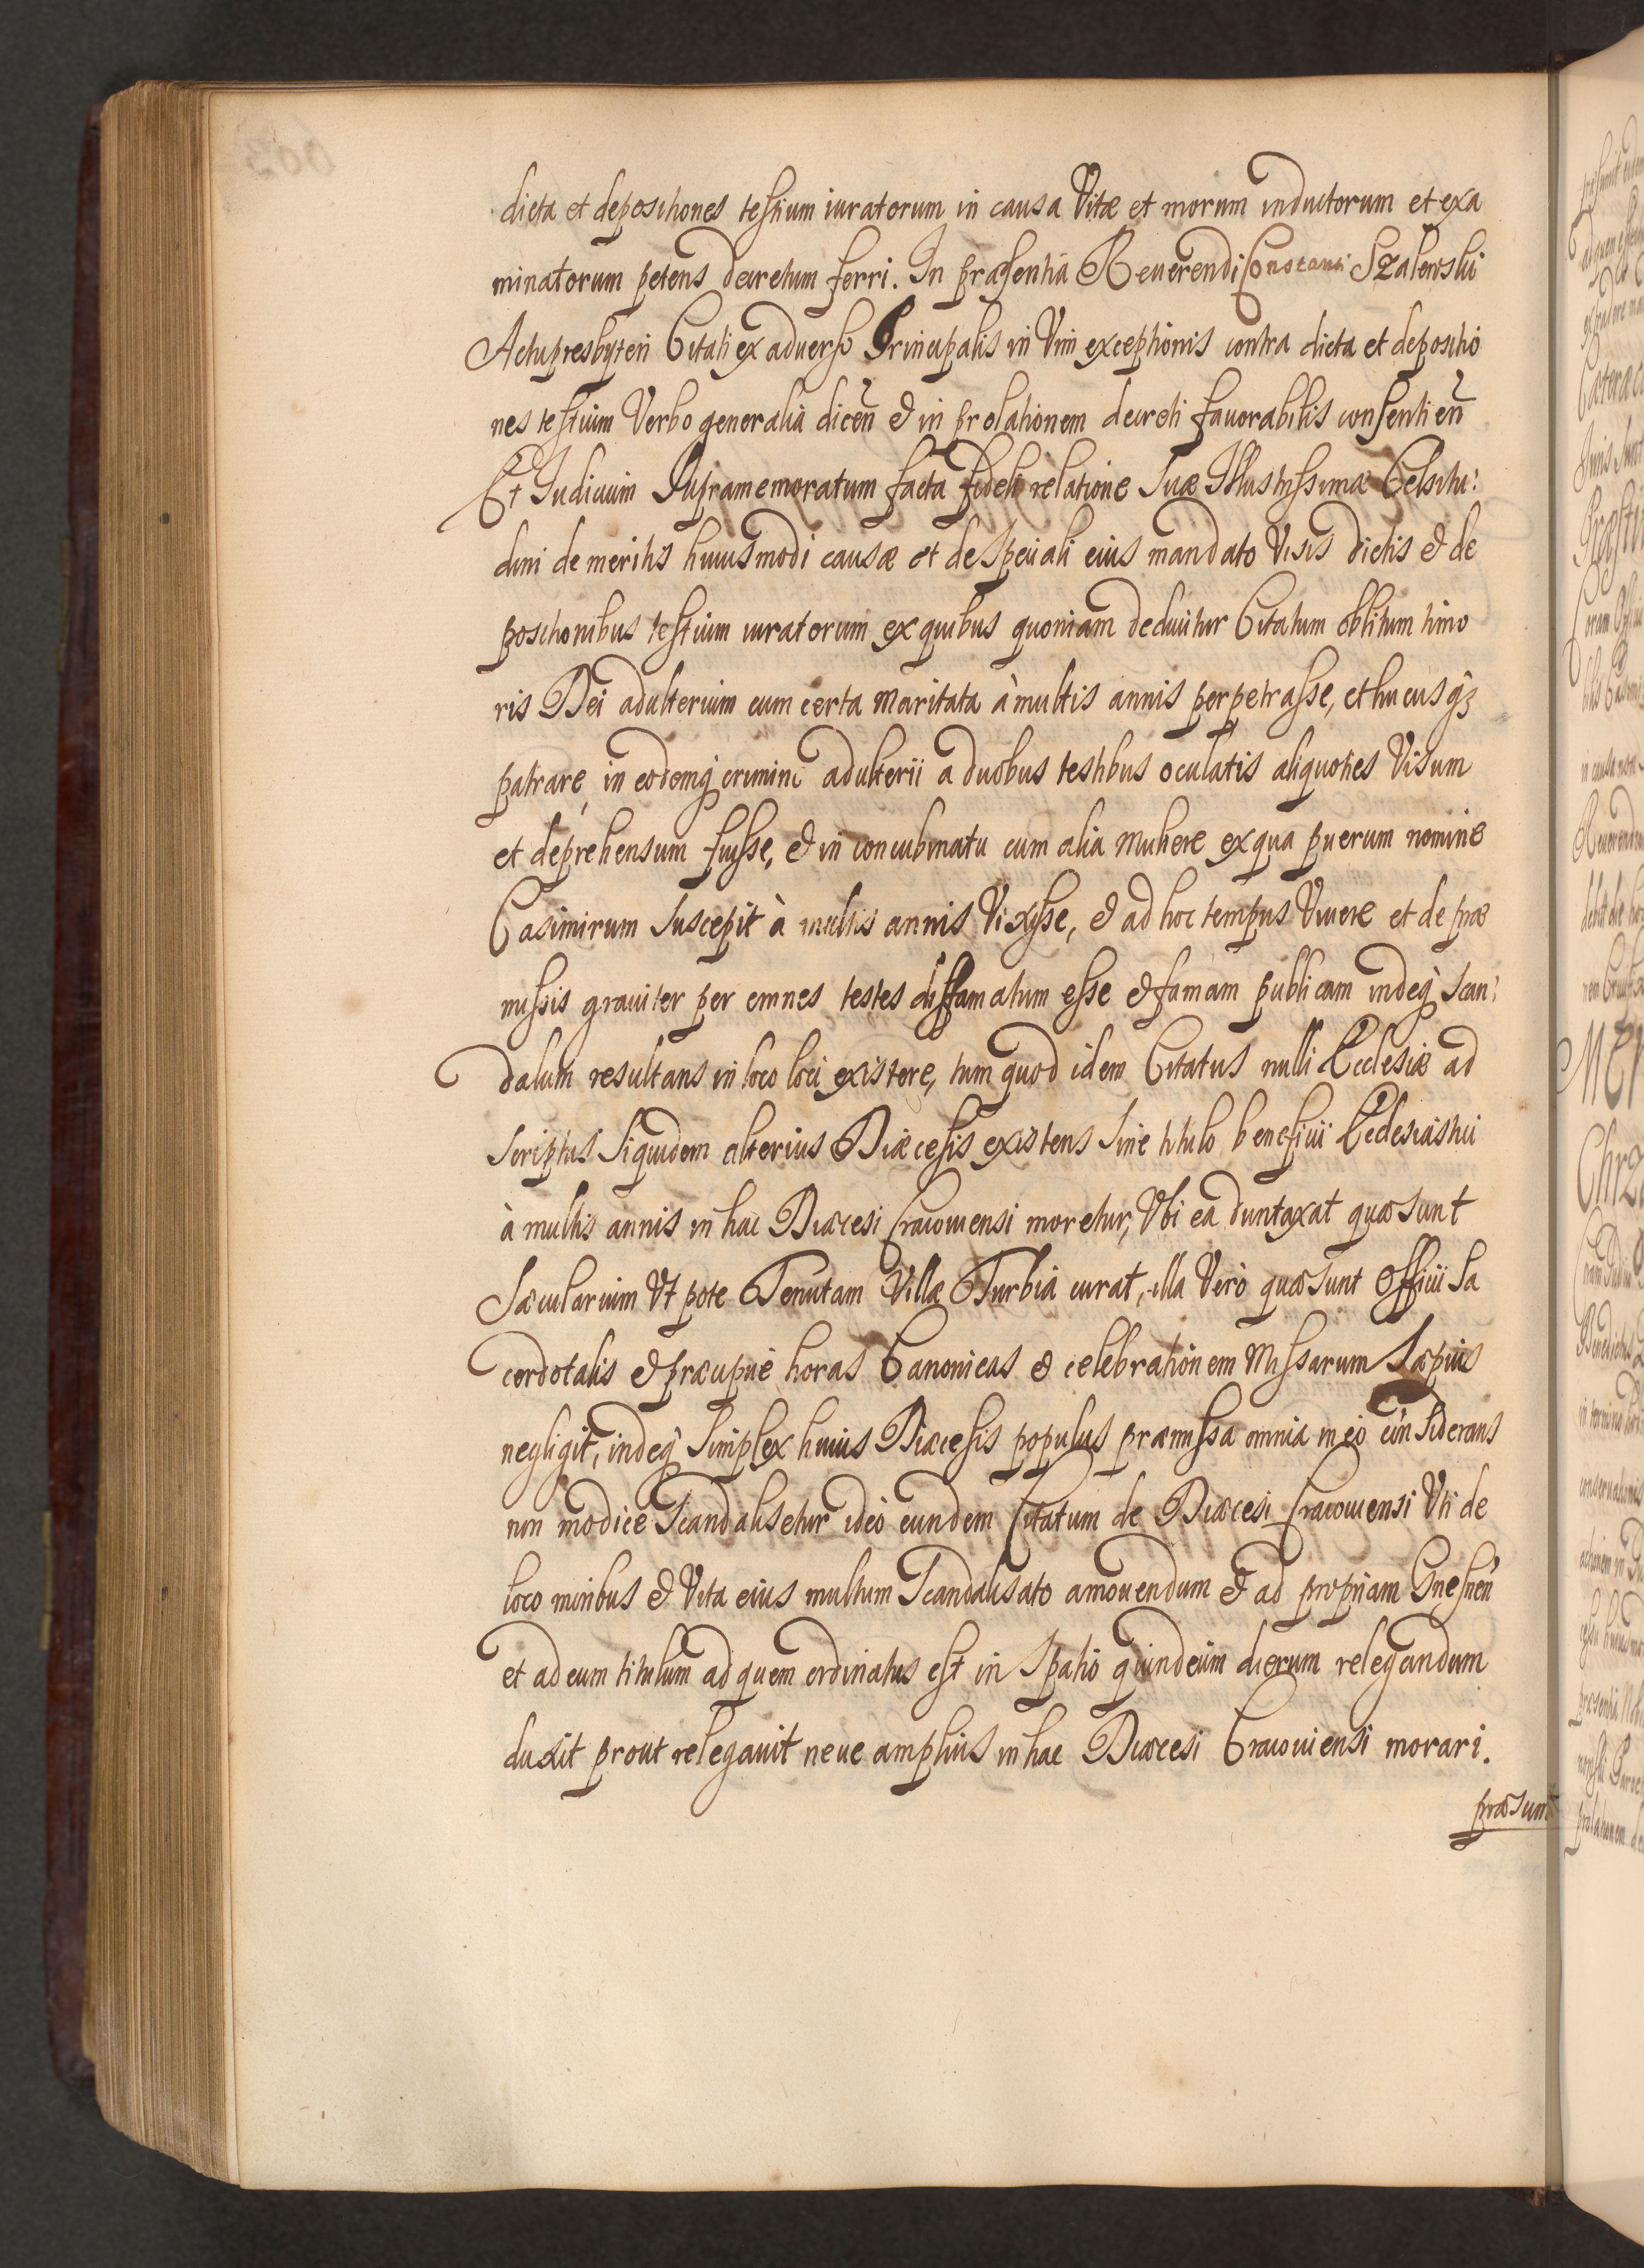 dicta et depositiones testium iuratorum in causa Vitæ et morum inductorum et exa
minatorum petens decretum ferri. In præsentia Reuerendi Constanti Szalewski
Actupresbyteri Citati ex aduerso Principalis in Vim exceptionis contra dicta et depositio
nes testium Verbo generalia diceñ & in prolationem decreti fauorabilis consentieñ
Et Iudicium Supramemoratum facta fideli relatione Suæ Illustrissimæ Celsitu:
dini de meritis huiusmodi causæ et de Speciali eius mandato Visis dictis & de
positionibus testium iuratorum ex quibus quoniam deducitur Citatum oblitum timo
ris Dei adulterium cum certa Maritata à multis annis perpetrasse, et hucusqz
patrare, in eodemq crimine adulterii a duobus testibus oculatis aliquoties Visum
et deprehensum fuisse, & in concubinatu cum alia Muliere ex qua puerum nomine
Casimirum Suscepit à multis annis Vixisse, & ad hoc tempus Viuere et de præ
missis grauiter per omnes testes diffamatum esse & famam publicam indeq Scan:
dalum resultans in loco loci existere, tum quod idem Citatus nulli Ecclesiæ ad
Scriptus Siquidem alterius Diæcesis existens Sine titulo beneficii Ecclesiastici
à multis annis in hac Diæcesi Cracouiensi moretur, Vbi ea duntaxat quæ Sunt
Sæcularium Vt pote Tenutam Villæ Turbia curat, illa Verò quæ Sunt Officii Sa
cerdotalis & præcipuè horas Canonicas & celebrationem Missarum Sæpius
negligit, indeq Simplex huius Diæcesis populus præmissa omnia in eo considerans
non modice Scandalisetur ideò eundem Citatum de Diæcesi Cracouiensi Vti de
loco moribus & Vita eius multum Scandalisato amouendum & ad propriam Gnesneñ
et ad eum titulum ad quem ordinatus est in Spatio quindecim dierum relegandum
duxit prout relegauit neue amplius in hac Diæcesi Cracouiensi morari.
præsum